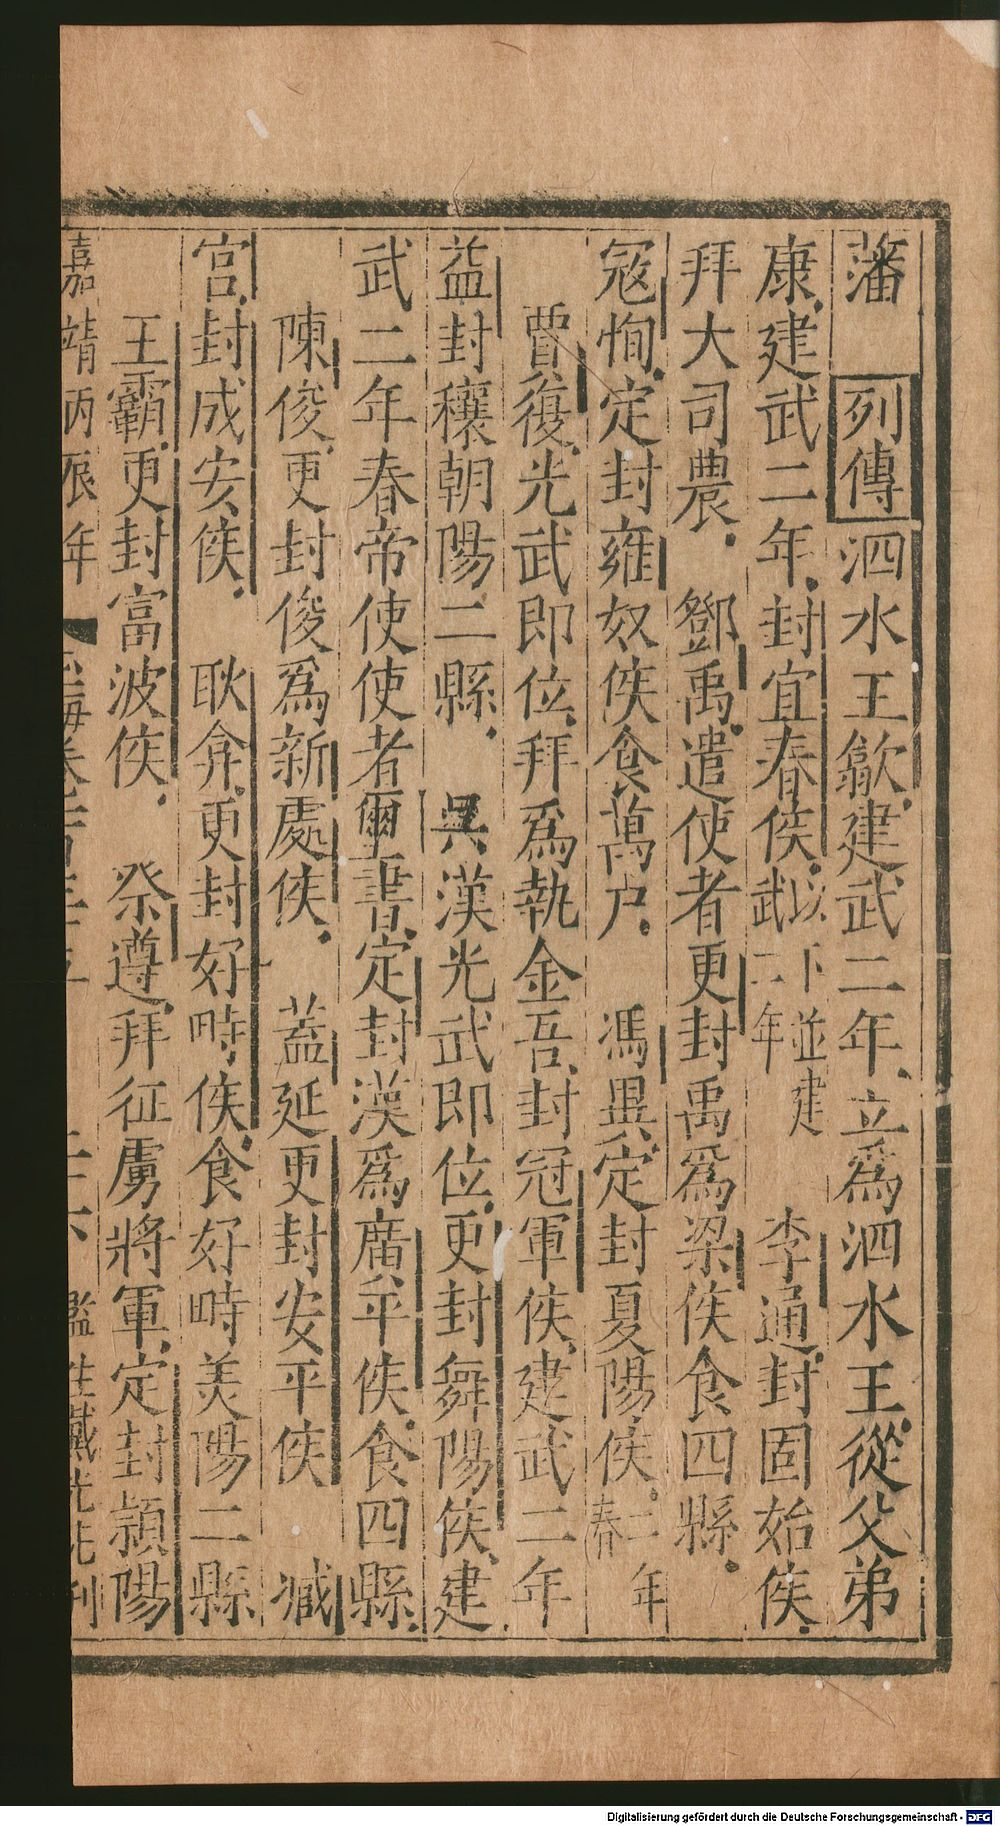 藩 列傳 泗水王歙建武二年立爲泗水王從父弟
康建武二年封宜春侯以下並建武二年 李通封固始侯
拜大司農 鄧禹遣使者更封禹爲梁侯食四縣
宼恂定封雍奴侯食萬户 馮異定封夏陽侯二年春
賈復光武即位拜爲執金吾封冠軍侯建武二年
益封穰朝陽二縣 吳漢光武即位更封舞陽侯建
武二年春帝使使者璽書定封漢爲廣平侯食四縣
陳俊更封俊爲新處侯 蓋延更封安平侯 臧
宫封成安侯 耿弇更封好畤侯食好畤美陽二縣
王霸更封富波侯 祭遵拜征虜將軍定封潁陽
嘉靖丙辰年 玉海卷 二十六 監生戴 刊
Digitalisierung gefördert durch die Deutsche Forschungsgemeinschaft - DFG